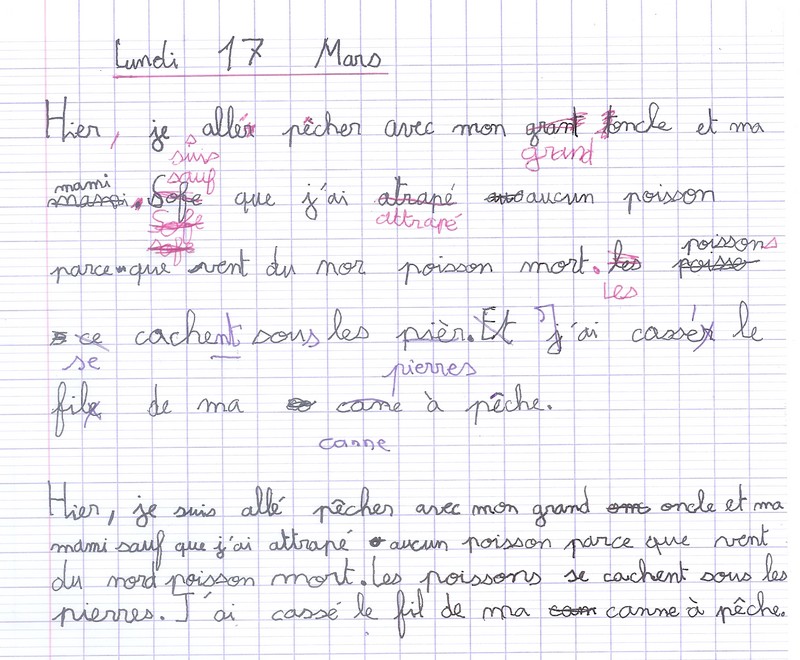 Lundi 17 Mars
Hier, je allér pêcher avec mon grant toncle et ma
suis grand
mami mamoi. Sofe que j'ai atrapé aucun poisson
sauf
Sofe attrapé
sofe
parce que vent du nor poisson mort. les poissons poisso
Les
ce cachent sous les pièr. Et J'ai cassér le
se pierres
file de ma cane à pêche.
canne
Hier, je suis allé pêcher avec mon grand onc oncle et ma
mami sauf que j'ai attrapé aucun poisson parce que vent
du nord poisson mort. Les poissons se cachent sous les
pierres. J'ai cassé le fil de ma cam canne à pêche.